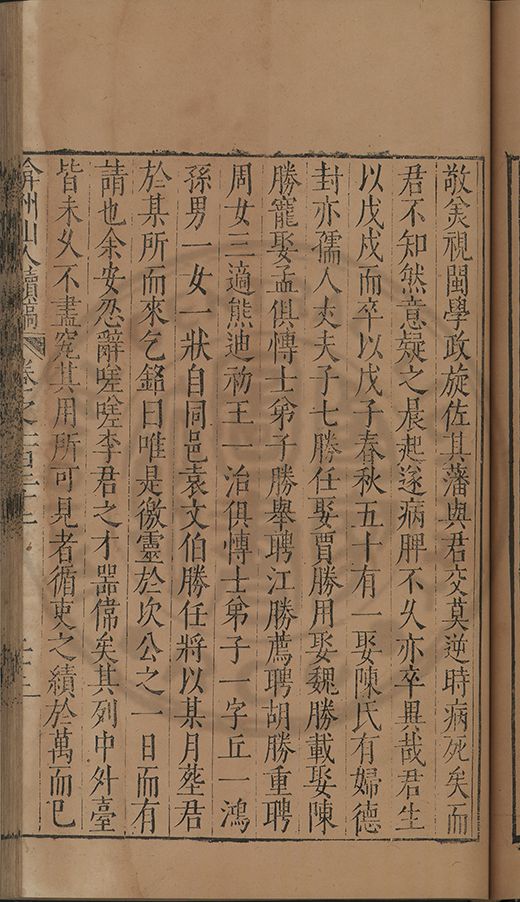 敬美視閩學政旋佐其藩與君交莫逆時病死矣而
君不知然意疑之晨起遂病脾不久亦卒異哉君生
以戊戌而卒以戊子春秋五十有一娶陳氏有婦德
封亦孺人丈夫子七勝任娶賈勝用娶魏勝載娶陳
勝寵娶孟俱博士弟子勝舉聘江勝薦聘胡勝重聘
周女三適熊迪祊王一治俱博士弟子一字丘一鴻
孫男一女一狀自同邑袁文伯勝任將以某月塟君
於某所而來乞銘曰唯是徼靈於次公之一日而有
請也余安忍辭嗟嗟李君之才噐偹矣其列中外臺
皆未久不盡究其用所可見者循吏之績於萬而已
弇州山人續稿 卷之一百二十三